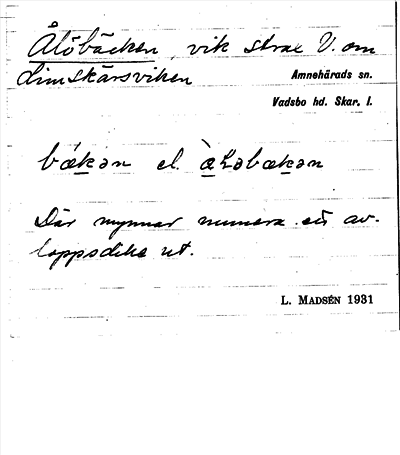 Ålöbäcken, vik strax V. om
Limskärsviken
Amnehärads sn.
Vadsbo hd. Skar. l.
bækən el. 
Där mynnar numera ett av-
loppsdike ut.
L. MADSÉN 1931